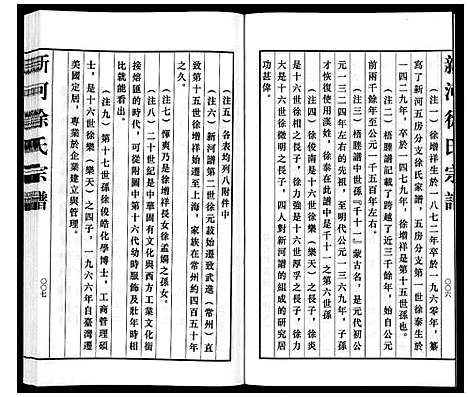 新河徐氏宗譜
〇〇六
（注一）徐增祥生於一八七二年卒於一九六〇年，纂
寫了新河五房分支徐氏家譜，五房分支第一世徐泰生於
一四二九年，卒於一四七九年，徐增祥是第十五世孫也。
（注二）梧塍譜記載了跨越了近三千餘年，始自公元
前兩千餘年至公元一千五百年左右。
（注三）梧塍譜中世孫『千十一』蒙古名，是元代初公
元一三二四年左右的先祖，至明代公元一三六九年，子孫
才恢復使用漢姓，徐泰在此譜中是千十一之後。
（注四）徐俊南是十六世徐樂（樂天）之長子，徐炎
是十六世徐和之長子，徐力強是十六世厚孚之長子，徐力
大是十六世徐微明之長子，四人對新河譜的組成的研究居
功甚偉。
（注五）各表均列八附件中
（注六）新河譜第二世徐元菽始遷致武進（常州）直
致第十五世徐增祥始遷至上海，家族在常州約四百五十年
之久。
（注七）惲爽乃是徐增祥長女徐孟嫻之孫女。
（注八）二十世紀是中華固有文化與西方工業文化銜
接熔匯的時代，可從附圖中第十六代幼時服飾及壯年時相
比就能看出。
（注九）第十七世孫徐俊皓化學博士，工商管理碩
士，是十六世徐樂（樂天）之四子，一九六六年自臺灣遷
美國定居，專業於企業建立與管理。
新河徐氏宗譜
〇〇七